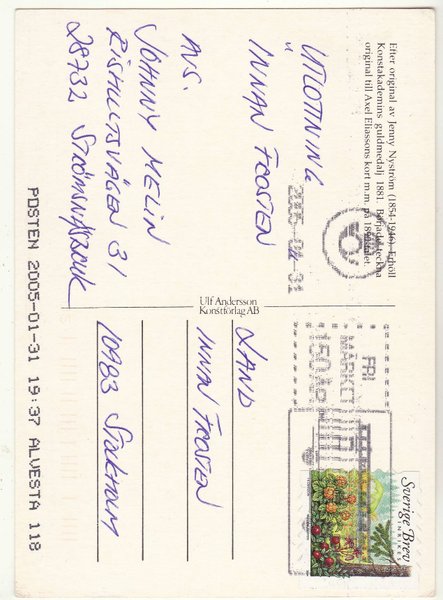 Efter original av Jenny Nyström (1854-1946). Erhöll
Konstakademins guldmedalj 1881. Började teckna
original till Axel Eliassons kort m.m. på 1890talet.
UTLOTTNING
INNAN FROSTEN
AVS.
JOHNNY MELIN
RISHULTSVÄGEN 31
28732 STRÖMSNÄSBRUK
Ulf Andersson
Konstförlag AB
FRI
MÄRKET
150 ÅR
Sverige Brev
INRIKES
LAND
INNAN FROSTEN
10983 STOCKHOLM
POSTEN 2005-01-31 19:37 ALVESTA 118